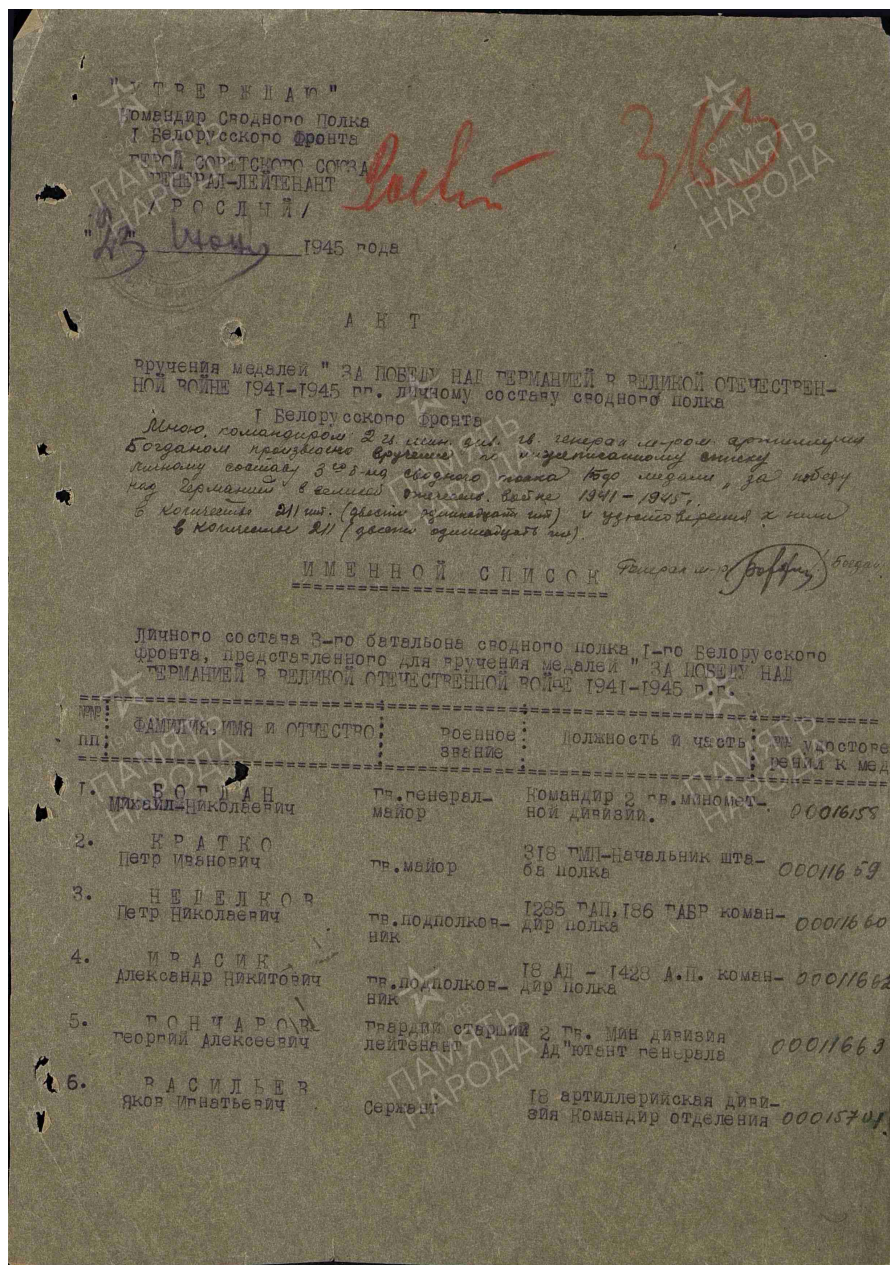 "УТВЕРЖДАЮ"
Командир Сводного Полка
I Белорусского фронта
ГЕРОЙ СОВЕТСКОГО СОЮЗА
ГЕНЕРАЛ-ЛЕЙТЕНАНТ
/РОСЛЫЙ/
"23" Июня 1945 года
АКТ
вручения медалей " ЗА ПОБЕДУ НАД ГЕРМАНИЕЙ В ВЕЛИКОЙ ОТЕЧЕСТВЕН-
НОЙ ВОЙНЕ 1941-1945 гг. личному составу сводного полка
I Белорусского фронта
Мною, командиром 2 гв. мин. див. гв. генерал м-ром артиллерии
Богданом произведено вручение по нижеписанному списку
личному составу 3го б-на сводного полка 1бдо медали „за победу
над Германией в великой отечеств. войне 1941-1945",
в количестве 211 шт. (двести одиннадцать шт) и удостоверения к ним
в количестве 211 (двести одиннадцать шт).
ИМЕННОЙ СПИСОК
Генерал м-р Богдан
Личного состава 3-го батальона сводного полка I-го Белорусского
фронта, представленного для вручения медалей " ЗА ПОБЕДУ НАД
ГЕРМАНИЕЙ В ВЕЛИКОЙ ОТЕЧЕСТВЕННОЙ ВОЙНЕ 1941-1945 г.г.
№№ пп ФАМИЛИЯ, ИМЯ И ОТЧЕСТВО Военное звание Должность и часть №№ удостове рения к мед
1. БОГДАН
Михаил Николаевич Гв.генерал-майор Командир 2 гв.миномет-ной дивизии. 00016158
2. КРАТКО
Петр Иванович гв.майор 318 ГМП-Начальник шта-ба полка 00011659
3. НЕДЕЛКОВ
Петр Николаевич гв.подполков-ник 1285 ГАП,186 ГАБР коман-дир полка 00011660
4. ИВАСИК
Александр Никитович гв.подполков-ник 18 АД - 1428 А.П. коман-дир полка 00011662
5. ГОНЧАРОВ
Георгий Алексеевич Гвардии старший лейтенант 2 Гв. Мин дивизия Ад"ютант генерала 00011663
6. ВАСИЛЬЕВ
Яков Игнатьевич Сержант 18 артиллерийская диви-зия Командир отделения 00015741
ПАМЯТЬ НАРОДА